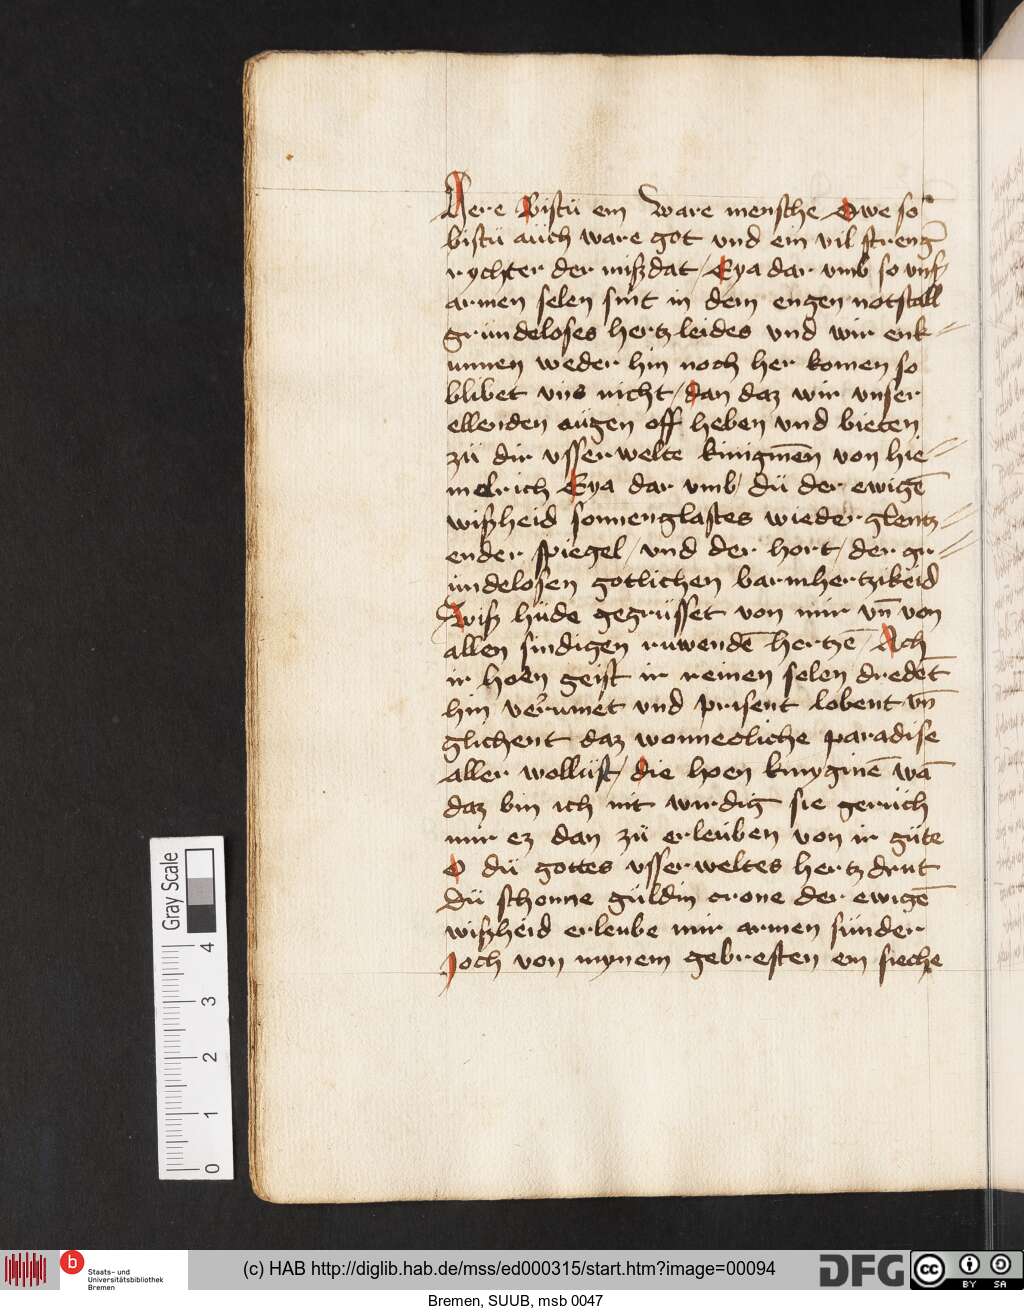 Here Bistü ein Ware mensche Owe so
bistü aüch ware got vnd ein vil strenḡ
rychter der mißdat / Eya dar vmb so vnß
armen selen sint in dem engen notstall
gründeloses hertz leides vnd wir enk=
unnen weder hin noch her komen so
blibet vns nicht / dan daz wir vnser
ellenden aügen off heben vnd bieten
zü dir vsserwelte kinigmē̄n von hie=
melrich Eya dar vmb / dü der ewigē
wißheid sonnenglastes wiederglentz=
ender spiegel / vnd der hort / der gr=
ündelosen gotlichen barmhertzikeid
Wiß hüde gegrüsset von mir vn̄ von
allen sündigen ruwendē hertzē / Ach
ir hoen geist ir reinen selen dredēt
hin verümet vnd prisent lobent vn̄
glichent daz wonnecliche paradise
aller wollüst / die hoen kinyginē wā
daz bin ich nit wirdig sie gerüch
mir ez dan zü erleüben von ir güte
O dü gottes vsserweltes hertz drut
dü schonne güldin crone der ewigē
wißheid erleube mir armen sünder
Joch von mynem gebresten ein sieche
Gray Scale
4
3
2
1
0
b
Staats- und
Universitätsbibliothek
Bremen
(c) HAB http://diglib.hab.de/mss/ed000315/start.htm?image=00094
DFG
cc
BY SA
Bremen, SUUB, msb 0047